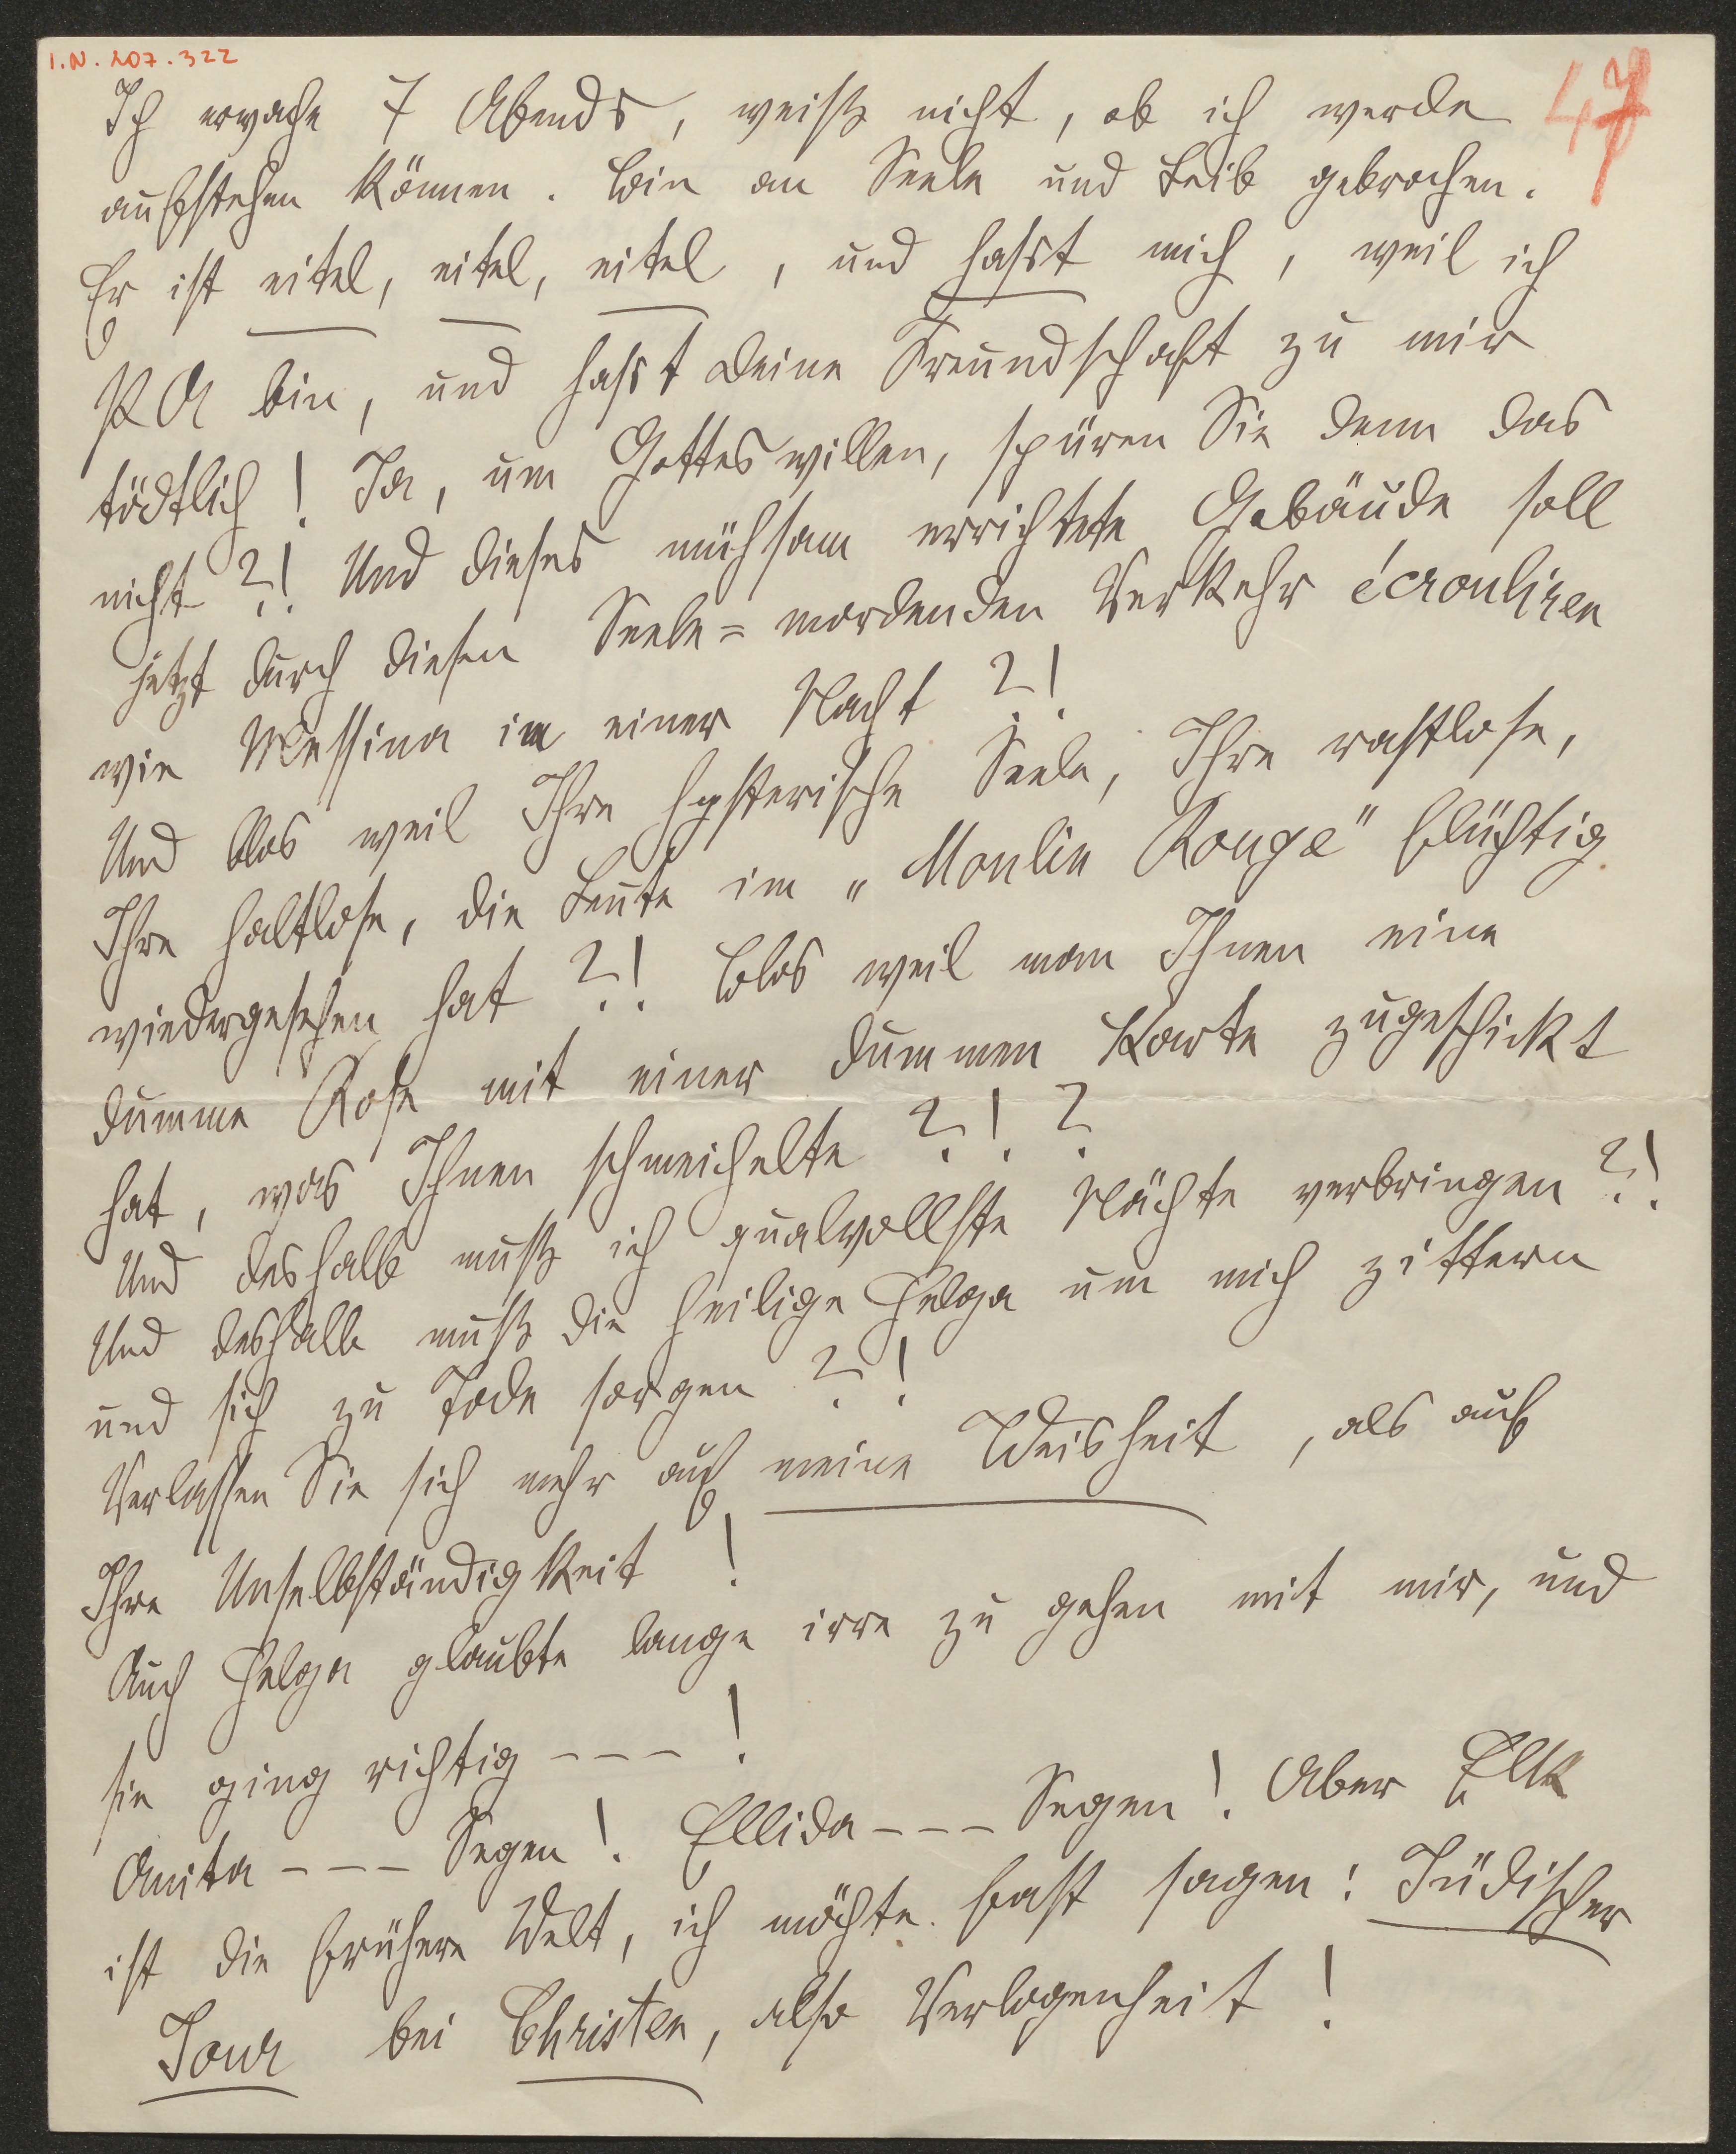 I.N. 207.322
47
Ich erwache 7 Abends, weiß nicht, ob ich werde
aufstehen können. Bin an Seele und Leib gebrochen.
Er ist eitel, eitel, eitel, und hasst mich, weil ich
PA bin, und hasst Deine Freundschaft zu mir
tödtlich! Ja, um Gottes willen, spüren Sie denn das
nicht?! Und dieses mühsam errichtete Gebäude soll
jetzt durch diesen Seele=mordenden Verkehr écrouliren
wie Messina in einer Nacht?!
Und blos weil Ihre hysterische Seele, Ihre rastlose,
Ihre haltlose, die Leute im „Moulin Rouge" flüchtig
wiedergesehen hat?! Blos weil man Ihnen eine
dumme Rose mit einer dummen Karte zugeschickt
hat, was Ihnen schmeichelte?!?
Und deshalb muß ich qualvollste Nächte verbringen?!
Und deshalb muß die heilige Helga um mich zittern
und sich zu Tode sorgen?!
Verlassen Sie sich mehr auf meine Weisheit, als auf
Ihre Unselbständigkeit!
Auch Helga glaubte lange irre zu gehen mit mir, und
sie ging richtig ---!
Anita --- Segen! Ellida --- Segen! Aber
ist die frühere Welt, ich möchte fast sagen: Jüdischer
Jour bei Christen, also Verlogenheit!